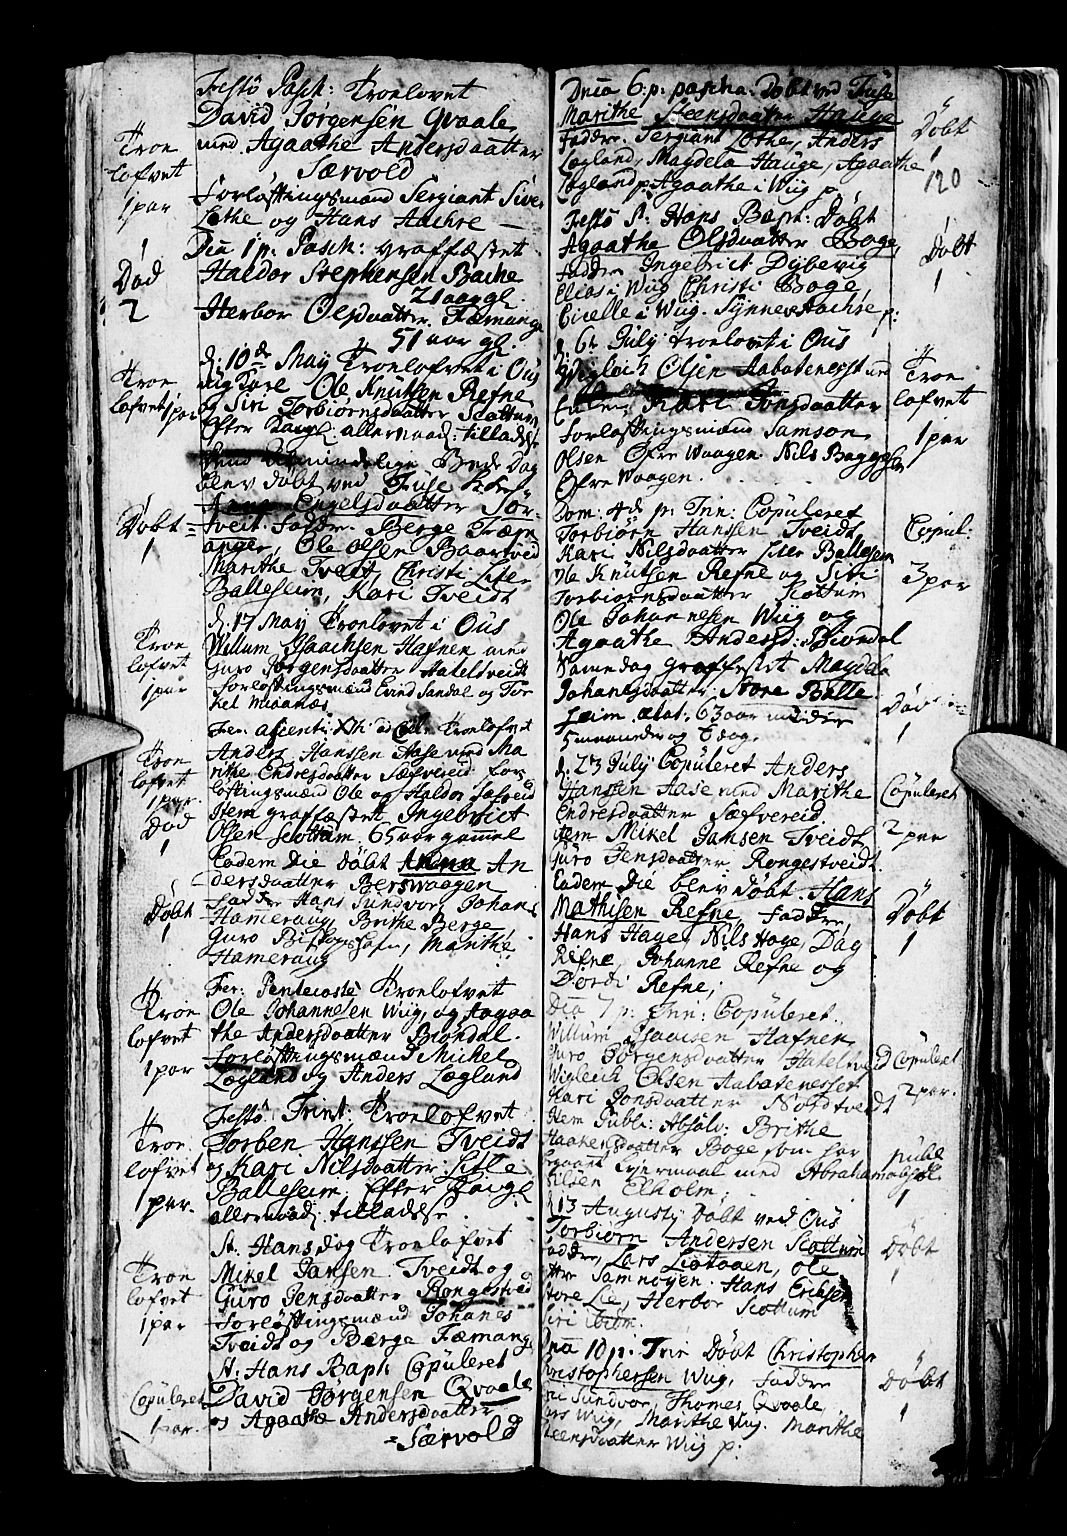 Festo Pasch: Troelovet
David Jørgensen Qvaale
med Agaathe Andersdaatter
Særvold
Forløftningsmænd Sergiant Siver
Lothe og Hans Aachre —
Troe
lofvet
1 par
Dca 1 p: Pasch: graffæstet
Haldor Stephensen Bache
21 aar gl:
Herbor Olsdaatter Fæmange
51 aar gl.
Død
2
d: 10de May Troelofvet i Ous
Ole Knutsen Refne
og Siri Torbiørnsdaatter Scottum
Efter Kongl. allernaad: tilladelse
Troe
lofvet 1 par
Almindelige Bede Dag
blev døbt ved Fuse Kirke
Engelsdaatter Sør-
tveit. Faddre. Berge Fæm
anger, Ole Olsen Baartved
Marithe Tveit, Christi Litle
Balleseim, Kari Tveidt
Døbt
1
d: 17 May Troelovet i Ous
Willum Isaachsen Hafnen med
Guro Jørgensdaatter Hateltveidt
Forløftningsmænd Evind Sandal og Tor
kel Moaanæs
Troe
lofvet
1 par
Fer: ascensi: Xti Troelofvet
Anders Hanssen Aase med Ma
rithe Endresdaatter Sæfvereid. For
løftingsmænd Ole og Haldor Sæfveid
Troe
lofvet
1 par
Item graffæstet Ingebrict
Olsen Scottum 65 aar gammel
Død
1
Eadem die døbt Anna An
dersdaatter Berswaagen
Faddre Hans Sundvor, Johans
Hameraug, Brithe Berge
Guro Marithe
Hameraug
Døbt
1
Fer: Pentecoste Troelofvet
Ole Johannesen Wiig, og Agaa
the Andersdaatter Biøndal.
Forløftningsmænd Michel
Lægland og Anders Lægland
Troe
lofvet
1 par
Festo Trint: Troelofvet
Torben Hanssen Tveidt
og Kari Nilsdaatter Litle
Balleseim, Efter Kongl
allernaad: tilladelse.
Troe
lofvet
1 par.
St. Hans dag Troelofvet
Mikel Jansen Tveidt og
Guro Jensdaatter Rongestved
Forløftningsmænd Johanes
Tveidt og Berge Fæmang
Troe
lofvet
1 par
St: Hans Bapt: Copuleret
David Jørgensen Qvaale
og Agaathe Andersdaatter
= Særvold
Copuleret
1 par.
120
Dnca 6: p: pascha. Døbt ved Fuse
Marithe Steensdaatter Hauge
Faddre Sergiant Lothe, Anders
Lægland, Magdela Hauge, Agaathe
Lægland p: Agaathe i Wiig p
Døbt
1
Festo S: Hans Bapt: Døbt
Agaathe Olsdaatter Boge
Faddre Ingebrict Dybevig
Elias i Wiig Christi Boge,
Cicelle i Wiig. Synneve Aachre p:
Døbt
1
d: 6te July troelovet i Ous
Wigleich Olsen Aabatenesset med
Kari Jonsdaatter
Forløftningsmænd Samson
Olsen Øfre Waagen. Nils Baggesen
Øfre Waagen.
Troe
lofvet
1 par
Dom: 4de p: Trin: Copuleret
Torbiørn Hanssen Tveidt
Kari Nilsdaatter Litle Balleseim
Ole Knutsen Refne og Siri
Torbiørnsdaatter Scottum
Ole Johannesen Wiig og
Agaathe Andersd: Biøndal
Copul:
3 par
Samedag graffestet Magdla
Johanesdaatter Store Balle
seim ætat: 63 aar mindre
5 maaneder og 6 dag.
Død
1
d: 23 July Copuleret Anders
Hanssen Aase med Marithe
Endresdaatter Sæfvereid
item Mikel Jamsen Tveidt
Guro Jensdaatter Rongestveidt
Copuleret
2 par
Eadem die blev døbt Hans
Mathisen Refne, Faddre
Hans Hage, Nils Hage, Dag
Refne, Johanne Refne og
Dordi Refne,
Døbt
1
Dca 7 p: Trin: Copuleret.
Willum Isaacsen Hafnen
Guro Jørgensdaatter Hateltveid
Wigleich Olsen Aabatenesset
Kari Jonsdaatter Nordtveidt
Copuleret
2 par.
Item Publ: Absolv: Brithe
Haakensdaatter Boge som har
begaaet Leyermaal med Abraham
Nilsen Elholm.
publ
absol
1
d 13 Augusty Døbt ved Ous
Torbiørn Andersen Scottum
Faddre, Lars Liotaaen, Ole
Samnøyen. Hans Ericksen
Store Lie, Herbor Scottum
Siri ibidm.
Døbt
1
Dca 10 p: Trin Døbt Christopher
Christophersen Wiig, Faddre
Sundvor, Thomes Qvaale,
Wiig, Marithe Wiig. Marithe
Steensdaatter Wiig p:
Døbt
1